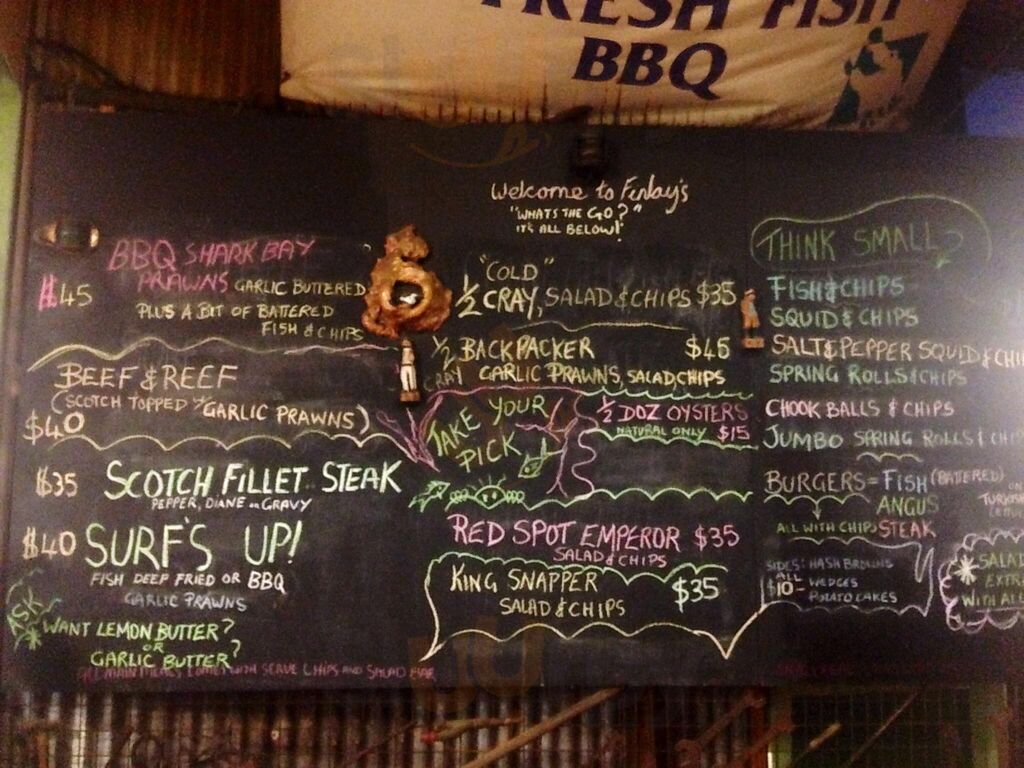 FRESH FISH
BBQ
Welcome to Finlay's
"WHATS THE GO?"
IT'S ALL BELOW!
BBQ SHARK BAY
$45 PRAWNS GARLIC BUTTERED
PLUS A BIT OF BATTERED
FISH & CHIPS
BEEF & REEF
(SCOTCH TOPPED W/ GARLIC PRAWNS)
$40
$35 SCOTCH FILLET STEAK
PEPPER, DIANE OR GRAVY
$40 SURF'S UP!
FISH DEEP FRIED OR BBQ
GARLIC PRAWNS
ASK
WANT LEMON BUTTER?
OR
GARLIC BUTTER?
ALL MAIN MEALS COME WITH SERVE CHIPS AND SALAD BAR
"COLD"
1/2 CRAY, SALAD & CHIPS $35
1/2 BACKPACKER $45
CRAY GARLIC PRAWNS, SALAD, CHIPS
TAKE YOUR
PICK
1/2 DOZ OYSTERS
NATURAL ONLY $15
RED SPOT EMPEROR $35
SALAD & CHIPS
KING SNAPPER $35
SALAD & CHIPS
THINK SMALL?
FISH & CHIPS
SQUID & CHIPS
SALT & PEPPER SQUID & CHI
SPRING ROLLS & CHIPS
CHOOK BALLS & CHIPS
JUMBO SPRING ROLLS & CHIP
BURGERS = FISH (BATTERED)
ANGUS ON
TURKISH
ALL WITH CHIPS STEAK
SIDES: HASH BROWNS
ALL WEDGES
$10- POTATO CAKES
SALAD
EXTRA
WITH ALL